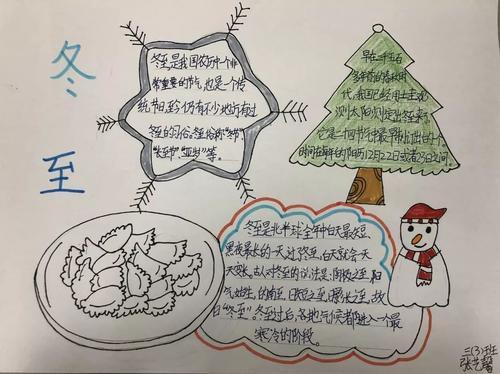 冬
至
冬至,是我国农历中一个非
常重要的节气,也是一个传
统节日,至今仍有不少地方有过
冬至的习俗。冬至俗称“冬节”、
“长至节”、“亚岁”等。
早在二千五百
多年前的春秋时
代,我国已经用土圭观
测太阳测定出冬至来了,
它是二十四节气中最早制订出的一个。
时间在每年的阳历12月22日或者23日之间。
冬至是北半球全年中白天最短、
黑夜最长的一天,过了冬至,白天就会一天
天变长。古人对冬至的说法是:阴极之至,阳
气始生,日南至,日短之至,日影长之至,故
曰“冬至”。冬至过后,各地气候都进入一个最
寒冷的阶段。
三(3)班